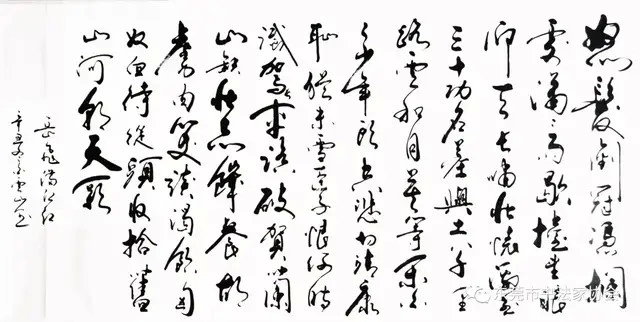 怒髮衝冠憑欄
處瀟瀟雨歇擡望眼
仰天長嘯壯懷激烈
三十功名塵與土八千里
路雲和月莫等閒白
了少年頭空悲切靖康
恥猶未雪臣子恨何時
滅駕長車踏破賀蘭
山缺壯志饑餐胡
虜肉笑談渴飲匈
奴血待從頭收拾舊
山河朝天闕
岳飛滿江紅
辛丑山書
东莞市书法家协会